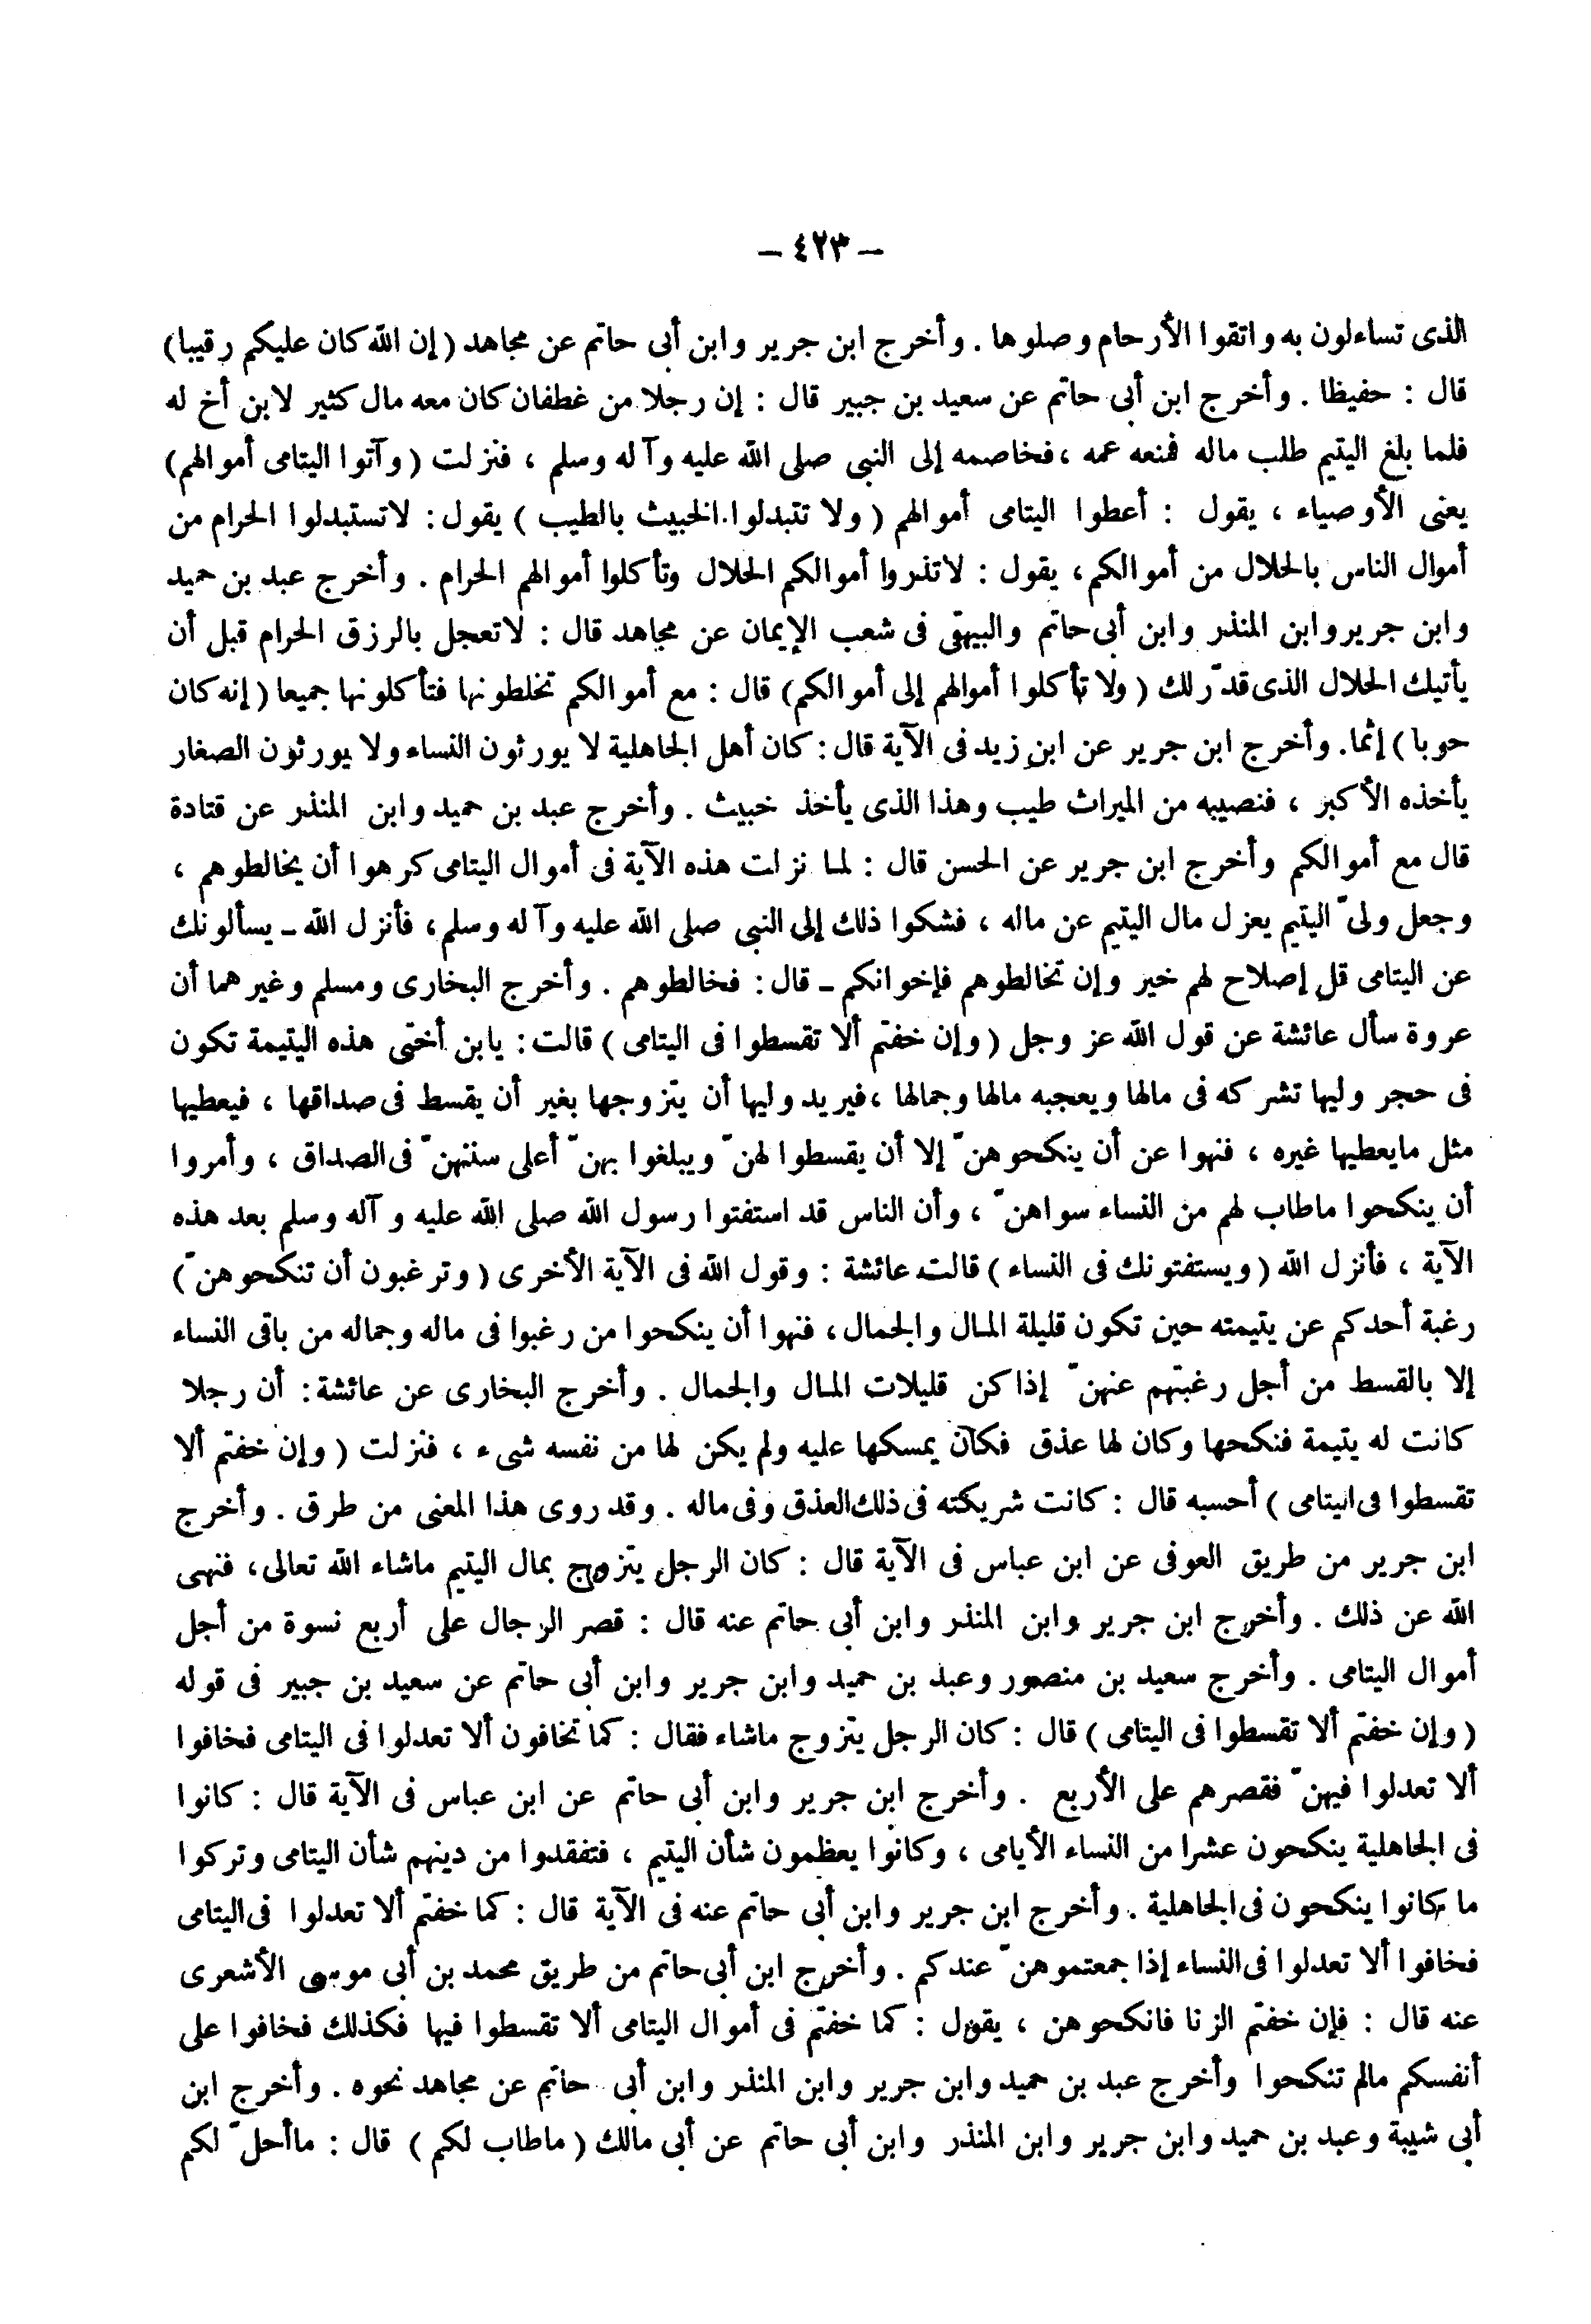 - ٤٢٣ -
الذى تساءلون به واتقوا الأرحام وصلوها . وأخرج ابن جرير وابن أبى حاتم عن مجاهد ( إن الله كان عليكم رقيبا )
قال : حفيظا . وأخرج ابن أبى حاتم عن سعيد بن جبير قال : إن رجلا من غطفان كان معه مال كثير لابن أخ له
فلما بلغ اليتيم طلب ماله فمنعه عمه ، فخاصمه إلى النبى صلى الله عليه وآله وسلم ، فنزلت ( وآتوا اليتامى أموالهم )
يعنى الأوصياء ، يقول : أعطوا اليتامى أموالهم ( ولا تتبدلوا الخبيث بالطيب ) يقول : لاتستبدلوا الحرام من
أموال الناس بالحلال من أموالكم ، يقول : لاتذروا أموالكم الحلال وتأكلوا أموالهم الحرام . وأخرج عبد بن حميد
وابن جرير وابن المنذر وابن أبى حاتم والبيهقى فى شعب الإيمان عن مجاهد قال : لاتعجل بالرزق الحرام قبل أن
يأتيك الحلال الذى قدّر لك ( ولا تأكلوا أموالهم إلى أموالكم ) قال : مع أموالكم تخلطونها فتأكلونها جميعا ( إنه كان
حوبا ) إثما . وأخرج ابن جرير عن ابن زيد فى الآية قال : كان أهل الجاهلية لا يورثون النساء ولا يورثون الصغار
يأخذه الأكبر ، فنصيبه من الميراث طيب وهذا الذى يأخذ خبيث . وأخرج عبد بن حميد وابن المنذر عن قتادة
قال مع أموالكم وأخرج ابن جرير عن الحسن قال : لما نزلت هذه الآية فى أموال اليتامى كرهوا أن يخالطوهم ،
وجعل ولىّ اليتيم يعزل مال اليتيم عن ماله ، فشكوا ذلك إلى النبى صلى الله عليه وآله وسلم ، فأنزل الله - يسألونك
عن اليتامى قل إصلاح لهم خير وإن تخالطوهم فإخوانكم - قال : فخالطوهم . وأخرج البخارى ومسلم وغيرهما أن
عروة سأل عائشة عن قول الله عز وجل ( وإن خفتم ألا تقسطوا فى اليتامى ) قالت : يابن أختى هذه اليتيمة تكون
فى حجر وليها تشركه فى مالها ويعجبه مالها وجمالها ، فيريد وليها أن يتزوجها بغير أن يقسط فى صداقها ، فيعطيها
مثل مايعطيها غيره ، فنهوا عن أن ينكحوهنّ إلا أن يقسطوا لهنّ ويبلغوا بهنّ أعلى سنتهنّ فى الصداق ، وأمروا
أن ينكحوا ماطاب لهم من النساء سواهنّ ، وأن الناس قد استفتوا رسول الله صلى الله عليه وآله وسلم بعد هذه
الآية ، فأنزل الله ( ويستفتونك فى النساء ) قالت عائشة : وقول الله فى الآية الأخرى ( وترغبون أن تنكحوهنّ )
رغبة أحدكم عن يتيمته حين تكون قليلة المال والجمال ، فنهوا أن ينكحوا من رغبوا فى ماله وجماله من باقى النساء
إلا بالقسط من أجل رغبتهم عنهنّ إذا كن قليلات المال والجمال . وأخرج البخارى عن عائشة : أن رجلا
كانت له يتيمة فنكحها وكان لها عذق فكان يمسكها عليه ولم يكن لها من نفسه شىء ، فنزلت ( وإن خفتم ألا
تقسطوا فى اليتامى ) أحسبه قال : كانت شريكته فى ذلك العذق وفى ماله . وقد روى هذا المعنى من طرق . وأخرج
ابن جرير من طريق العوفى عن ابن عباس فى الآية قال : كان الرجل يتزوج بمال اليتيم ماشاء الله تعالى ، فنهى
الله عن ذلك . وأخرج ابن جرير وابن المنذر وابن أبى حاتم عنه قال : قصر الرجال على أربع نسوة من أجل
أموال اليتامى . وأخرج سعيد بن منصور وعبد بن حميد وابن جرير وابن أبى حاتم عن سعيد بن جبير فى قوله
( وإن خفتم ألا تقسطوا فى اليتامى ) قال : كان الرجل يتزوج ماشاء فقال : كما تخافون ألا تعدلوا فى اليتامى فخافوا
ألا تعدلوا فيهنّ فقصرهم على الأربع . وأخرج ابن جرير وابن أبى حاتم عن ابن عباس فى الآية قال : كانوا
فى الجاهلية ينكحون عشرا من النساء الأيامى ، وكانوا يعظمون شأن اليتيم ، فتفقدوا من دينهم شأن اليتامى وتركوا
ما كانوا ينكحون فى الجاهلية . وأخرج ابن جرير وابن أبى حاتم عنه فى الآية قال : كما خفتم ألا تعدلوا فى اليتامى
فخافوا ألا تعدلوا فى النساء إذا جمعتموهنّ عندكم . وأخرج ابن أبى حاتم من طريق محمد بن أبى موسى الأشعرى
عنه قال : فإن خفتم الزنا فانكحوهن ، يقول : كما خفتم فى أموال اليتامى ألا تقسطوا فيها فكذلك فخافوا على
أنفسكم مالم تنكحوا وأخرج عبد بن حميد وابن جرير وابن المنذر وابن أبى حاتم عن مجاهد نحوه . وأخرج ابن
أبى شيبة وعبد بن حميد وابن جرير وابن المنذر وابن أبى حاتم عن أبى مالك ( ماطاب لكم ) قال : ماأحلّ لكم